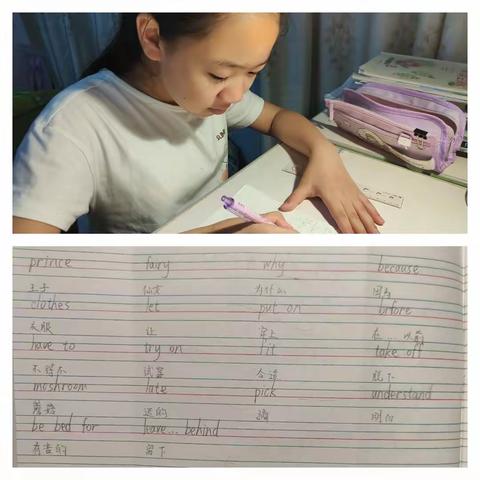 prince fairy why because
王子 仙女 为什么 因为
clothes let put on brfore
衣服 让 穿上 在...以前
have to try on fit take off
不得不 试穿 合适 脱下
moshroom late pick understand
蘑菇 迟的 摘 明白
be bed for leave... behind
有害的 留下